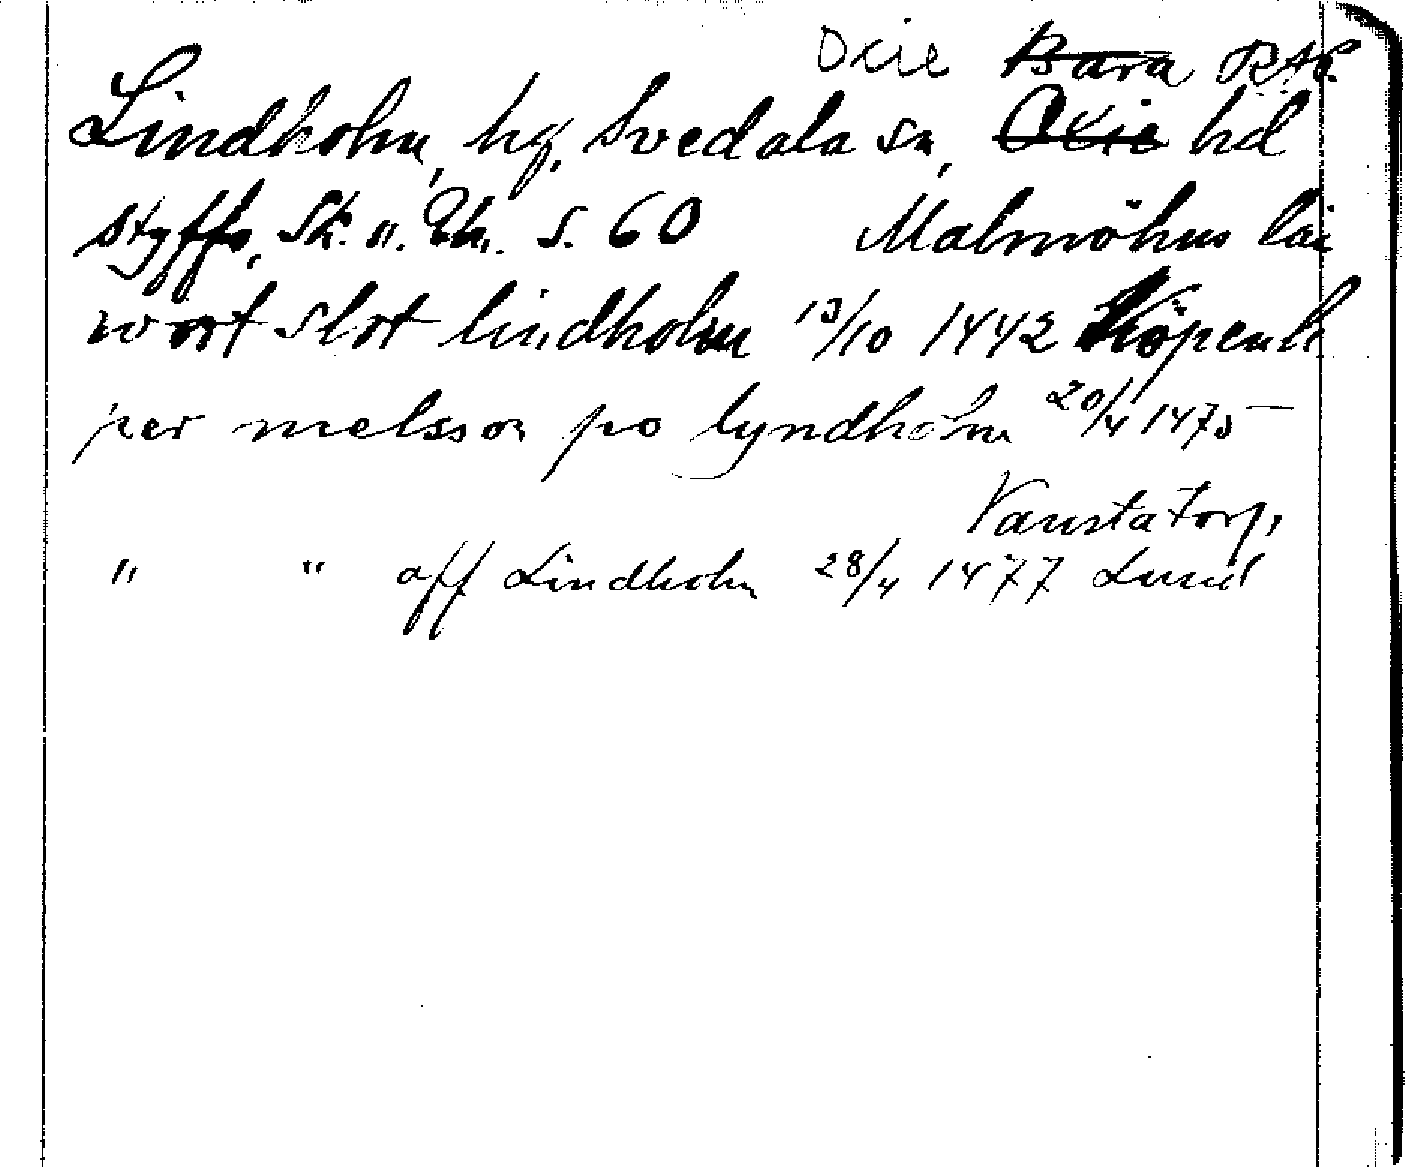 Oxie Bara RAP.
Lindholm, hg, Svedala sn, Oxie hd
Styffe, Sk. u. Un. s. 60 Malmöhus län
wort slot lindholm 13/10 1442 Köpenh
per nielsson po lyndholm 20/4 1475
Vanstatorp,
" " aff Lindholm 28/4 1477 Lund